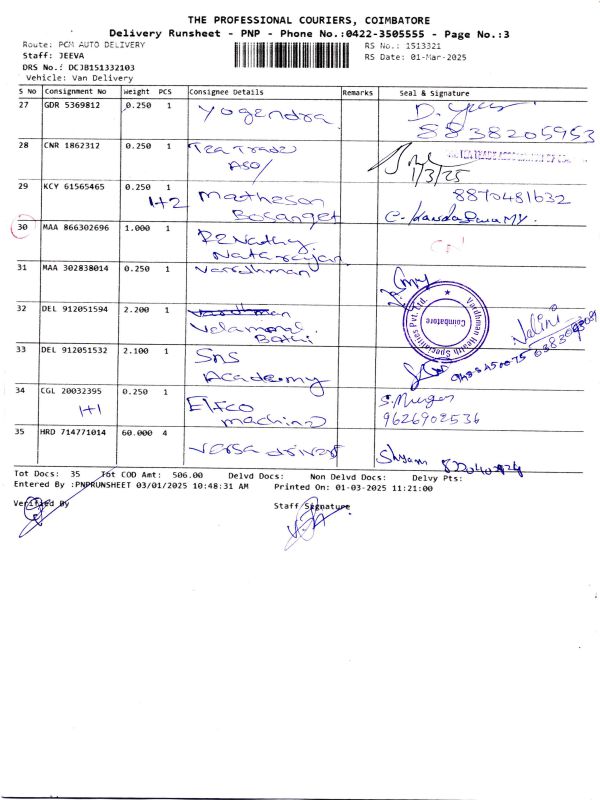 THE PROFESSIONAL COURIERS, COIMBATORE
Delivery Runsheet - PNP - Phone No.:0422-3505555 - Page No.:3
Route: PCM AUTO DELIVERY
RS No.: 1513321
Staff: JEEVA
RS Date: 01-Mar-2025
DRS No.: DCJB151332103
Vehicle: Van Delivery
S No Consignment No Weight PCS Consignee Details Remarks Seal & Signature
27 GDR 5369812 0.250 1 Yogendra
8838205953
28 CNR 1862312 0.250 1 Tea Trade
ASO/
1/3/25
29 KCY 61565465 0.250 1 Matheson 8870481632
1+2 Bosanget
30 MAA 866302696 1.000 1 CN
Natarajan
31 MAA 302838014 0.250 1 Vardhman
32 DEL 912051594 2.200 1 Vardhman
Velammal Nalini
Vardhman Health Specialities Pvt. Ltd.
Coimbatore
33 DEL 912051532 2.100 1 SNS
Academy
34 CGL 20032395 0.250 1 Elfco S. Murugan
1+1 machine 9626902536
35 HRD 714771014 60.000 4 Versa drives Shyam
Tot Docs: 35 Tot COD Amt: 506.00 Delvd Docs: Non Delvd Docs: Delvy Pts:
Entered By :PNPRUNSHEET 03/01/2025 10:48:31 AM Printed On: 01-03-2025 11:21:00
Verified By Staff Signature